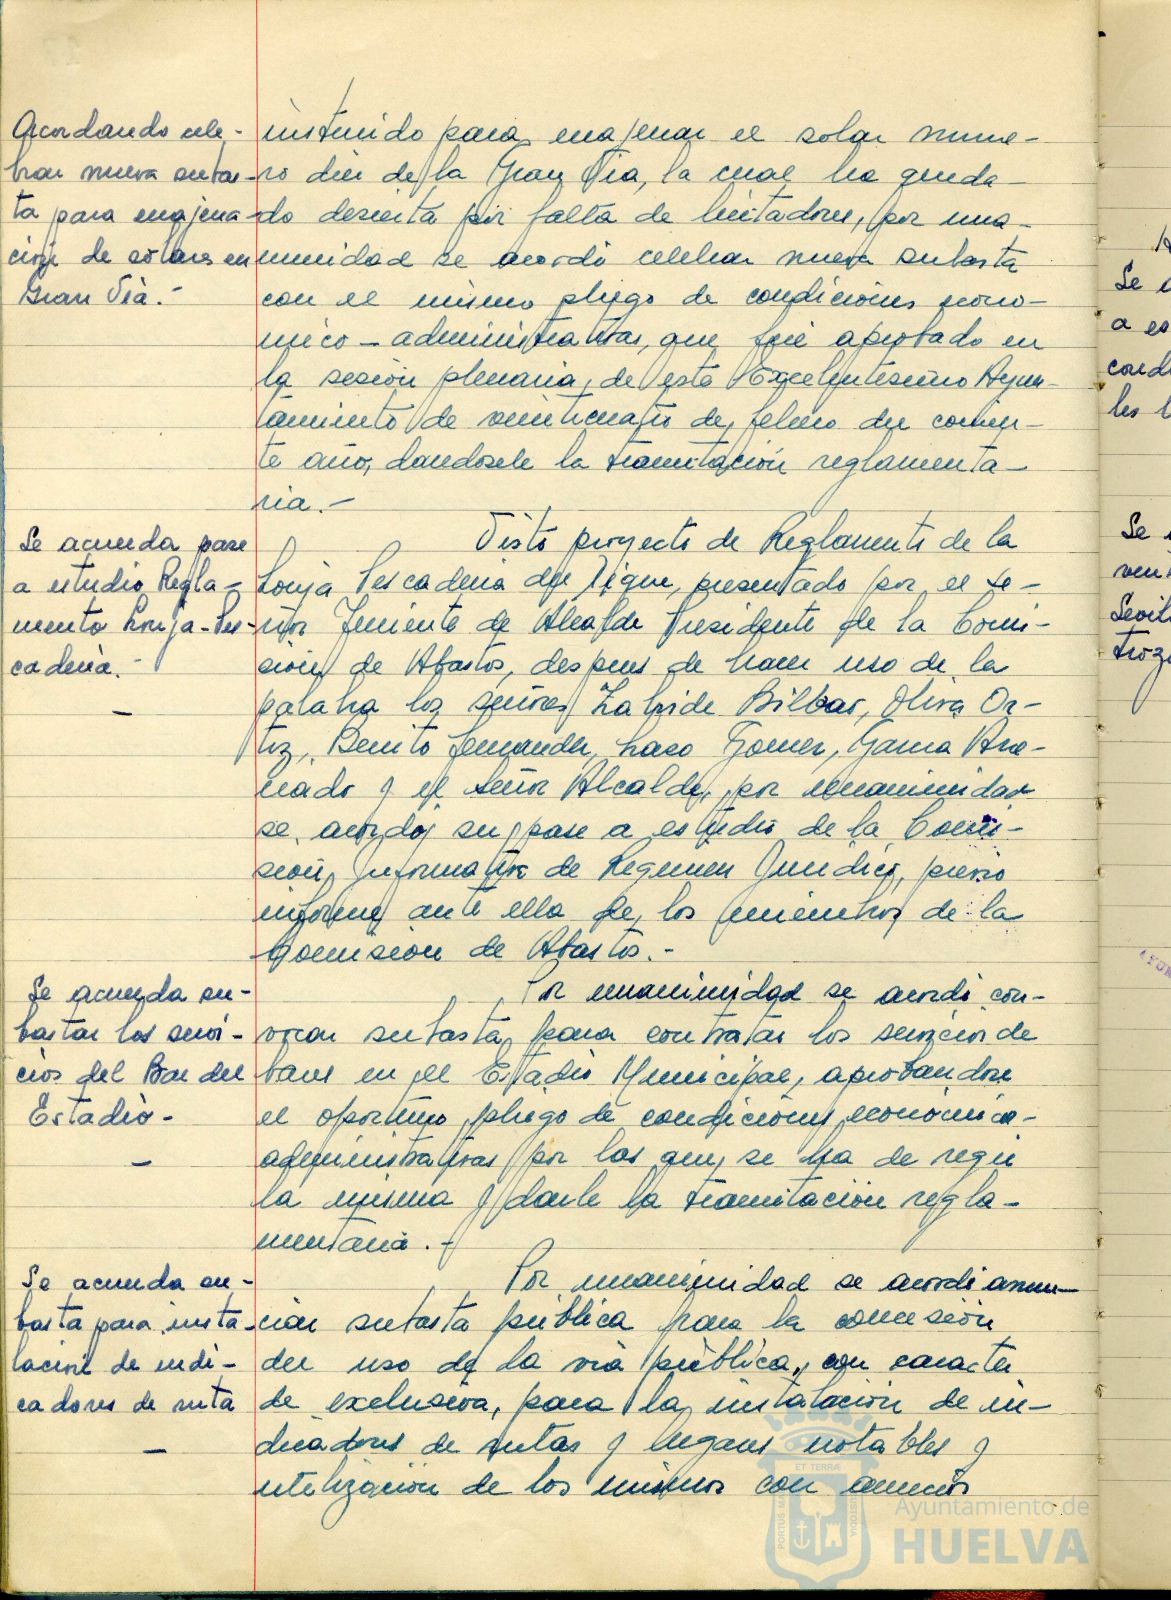 Acordando cele-
brar nueva subas-
ta para enajena-
ción de solares en
Gran Vía.-
instruido para enajenar el solar núme-
ro diez de la Gran Vía, la cual ha queda-
do desierta por falta de licitadores, por una-
nimidad se acordó celebrar nueva subasta
con el mismo pliego de condiciones econó-
mico-administrativas, que fué aprobado en
la sesión plenaria, de este Excelentísimo Ayun-
tamiento de veinticuatro de febrero del corrien-
te año, dandosele la tramitación reglamenta-
ria.-
Se acuerda pase
a estudio Regla-
mento Lonja-Pes-
cadería.-
Visto proyecto de Reglamento de la
Lonja Pescadería del Dique, presentado por el se-
ñor Teniente de Alcalde Presidente de la Comi-
sión de Abastos, despues de hacer uso de la
palabra los señores Zalvide Bilbao, Oliva Or-
tiz, Benito Fernandez, Laso Gomez, Garcia
y el señor Alcalde, por unanimidad
se acordó su pase a estudio de la Comi-
sión Informativa de Regimen Juridico, previo
informe ante ella de los miembros de la
Comisión de Abastos.-
Se acuerda su-
bastar los servi-
cios del Bar del
Estadio-
Por unanimidad se acordó con-
vocar subasta para contratar los servicios de
bares en el Estadio Municipal, aprobandose
el oportuno pliego de condiciones económico-
administrativas por las que se ha de regir
la misma y darle la tramitación regla-
mentaria.-
Se acuerda su-
basta para insta-
lación de indi-
cadores de ruta
Por unanimidad se acordó anun-
ciar subasta pública para la concesión
del uso de la vía pública, con caracter
de exclusiva, para la instalación de in-
dicadores de rutas y lugares notables y
utilización de los mismos con anuncios
ET TERRÆ
PORTUS MA
CUSTODIA
Ayuntamiento de
HUELVA
Se
a es
cond
les
Se
ven
Sevil
troz